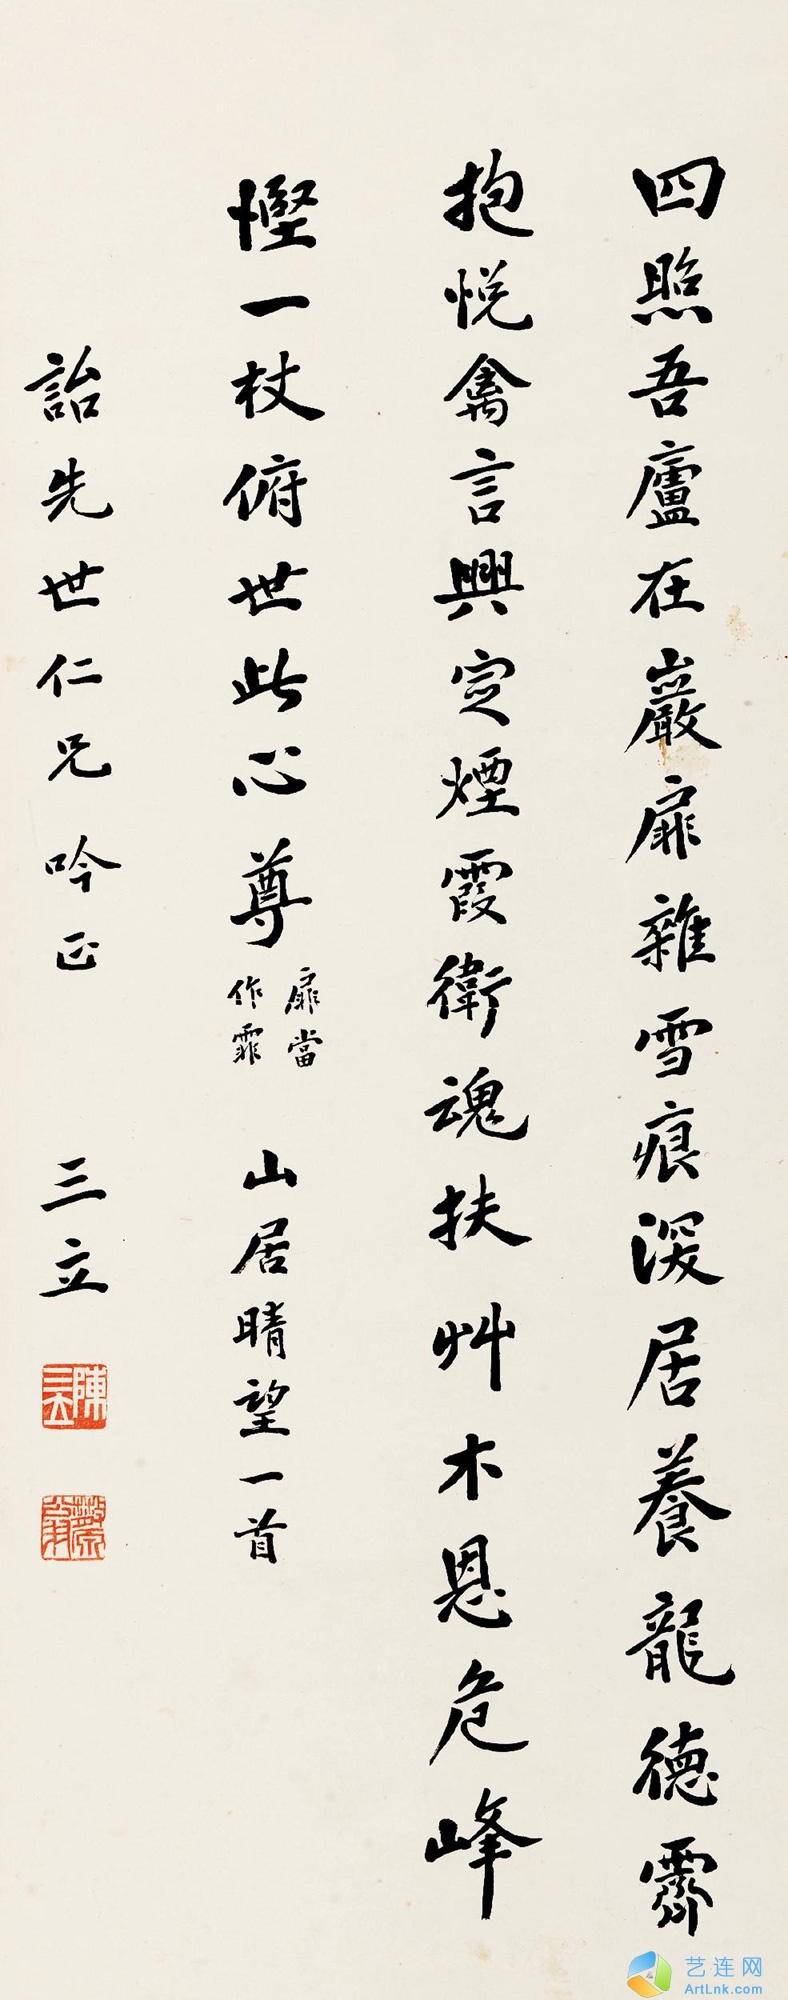 四照吾廬在巖扉雜雪痕深居養龍德霽
抱悅禽言興定煙霞衛魂扶艸木恩危峰
慳一杖俯世此心尊扉當作霏 山居晴望一首
詒先世仁兄吟正 三立
陳三立
散原
艺连网
ArtLnk.com